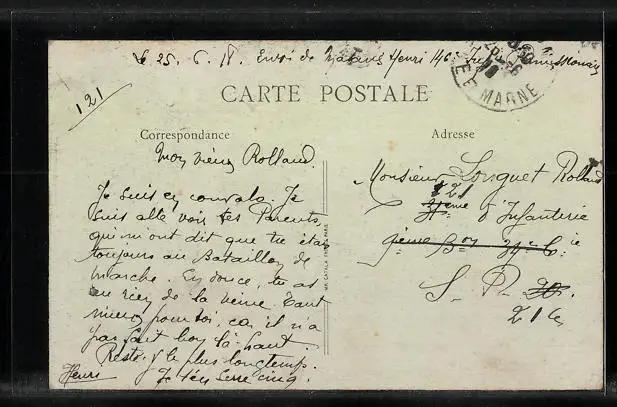 Le 25. 6. 18. Envoi de Henri 146e
121
CARTE POSTALE
Correspondance
Adresse
MARNE
Mon vieux Rolland.
Je suis en convalo. Je
suis allé voir tes Parents,
qui m'ont dit que tu étais
toujours au Bataillon de
marche. En douce, tu as
eu rien de la veine. Tant
mieux pour toi, car il n'a
pas fait bon là-haut.
Reste-y le plus longtemps.
Je t'en serre cinq.
Henri
Monsieur Longuet Rolland
121
d'Infanterie
9ième Bon 34e Cie
S. P. 20.
216